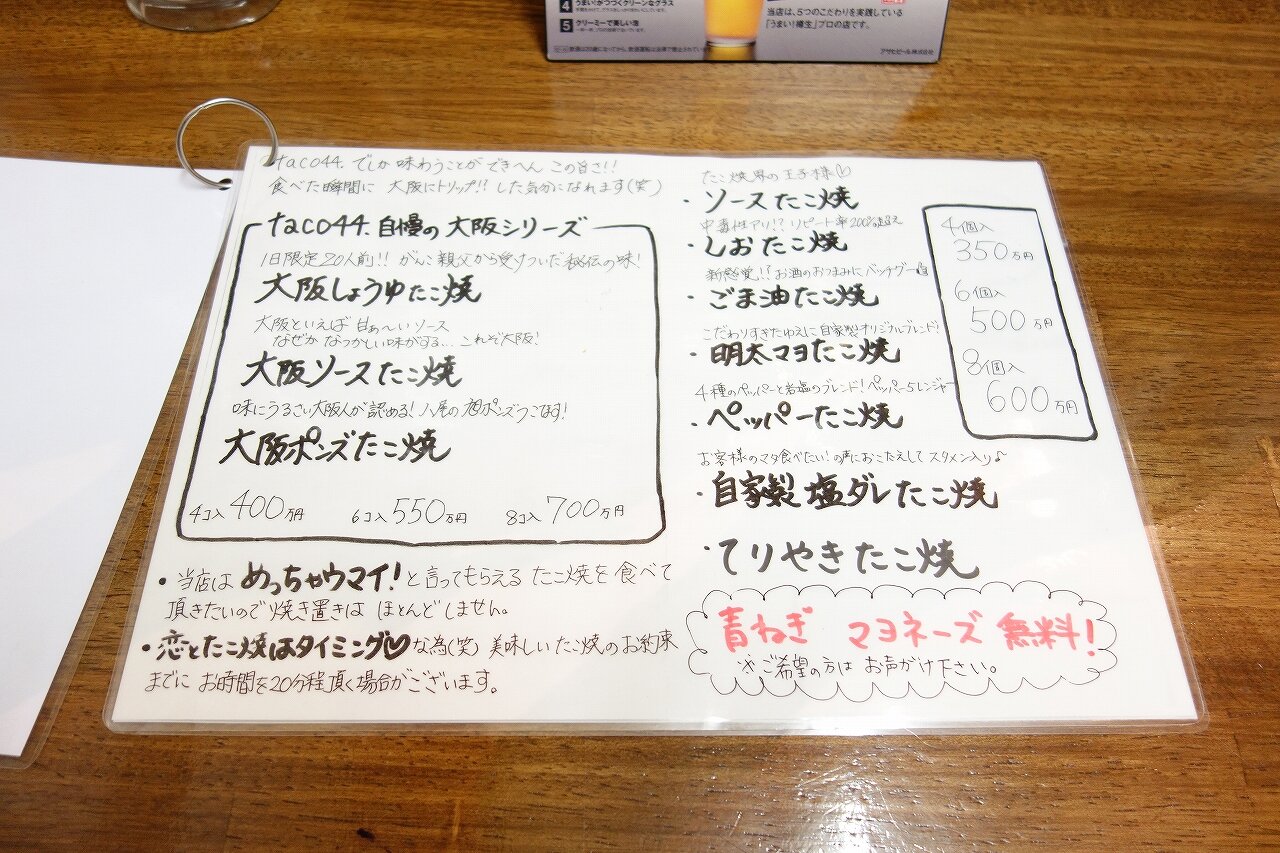 4 うまい!がつづくクリーンなグラス
5 クリーミーで美しい泡
当店は、5つのこだわりを実践している
「うまい!樽生」プロの店です。
アサヒビール株式会社
taco44.でしか味わうことができへんこの旨さ!!
食べた瞬間に 大阪にトリップ!! した気分になれます(笑)
taco44.自慢の大阪シリーズ
1日限定20人前!! がんこ親父から受けついだ秘伝の味!
大阪しょうゆたこ焼
大阪といえば 甘ぁ〜いソース
なぜか なつかしい味がする... これぞ大阪!
大阪ソースたこ焼
味にうるさい大阪人が認める! 八尾の旭ポンズつこてます!
大阪ポンズたこ焼
4コ入400万円 6コ入550万円 8コ入700万円
・当店は めっちゃウマイ! と言ってもらえる たこ焼を 食べて
頂きたいので 焼き置きは ほとんどしません。
・恋とたこ焼はタイミング♡な為(笑) 美味しいたこ焼のお約束
までに お時間を20分程頂く場合がございます。
たこ焼界の王子様♡
・ソースたこ焼
中毒性アリ!? リピート率200%超え
・しおたこ焼
新感覚!? お酒のおつまみにバッチグー
・ごま油たこ焼
こだわりすぎたゆえに自家製オリジナルブレンド!
・明太マヨたこ焼
4種のペッパーと岩塩のブレンド! ペッパー5レンジャー
・ペッパーたこ焼
お客様のマタ食べたい!の声におこたえして スタメン入り♪
・自家製塩ダレたこ焼
・てりやきたこ焼
4個入
350万円
6個入
500万円
8個入
600万円
青ねぎ マヨネーズ 無料!
※ご希望の方は お声がけ下さい。